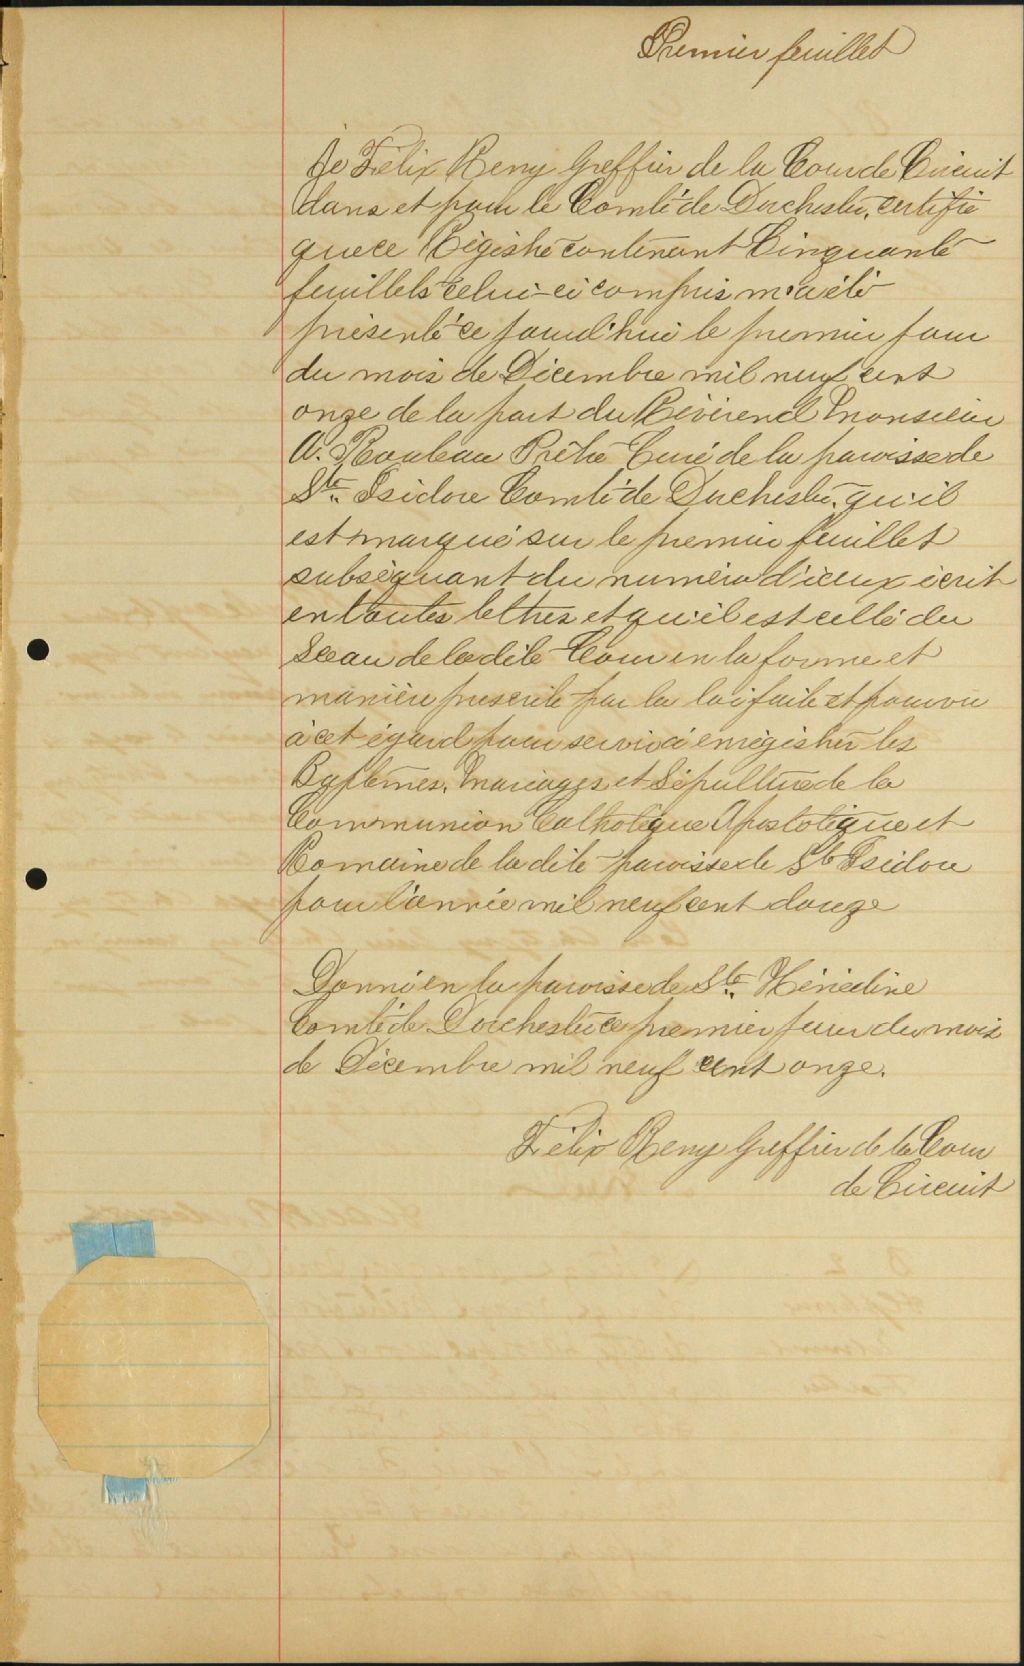 Premier feuillet
Je Félix Remy Greffier de la Cour de Circuit
dans et pour le Comté de Dorchester, certifie
que ce Régistre contenant Cinquante
feuillets celui-ci compris m'a été
présenté ce jourd'hui le premier jour
du mois de Décembre mil neuf cent
onze de la part du Révérend Monsieur
A. Rouleau Prêtre Curé de la paroisse de
Ste. Isidore Comté de Dorchester, qu'il
est marqué sur le premier feuillet
subséquant du numéro d'iceux écrit
en toutes lettres et qu'il est cellé du
Sceau de la dite Cour en la forme et
manière prescrite par la loi faite et pourvu
à cet égard pour servir à enrégistrer les
Baptêmes, Mariages et Sépulture de la
Communion Catholique Apostolique et
Romaine de la dite paroisse de St Isidore
pour l'année mil neuf cent douze
Donné en la paroisse de Ste. Hénédine
Comté de Dorchester ce premier jour du mois
de Décembre mil neuf cent onze.
Félix Remy Greffier de la Cour
de Circuit